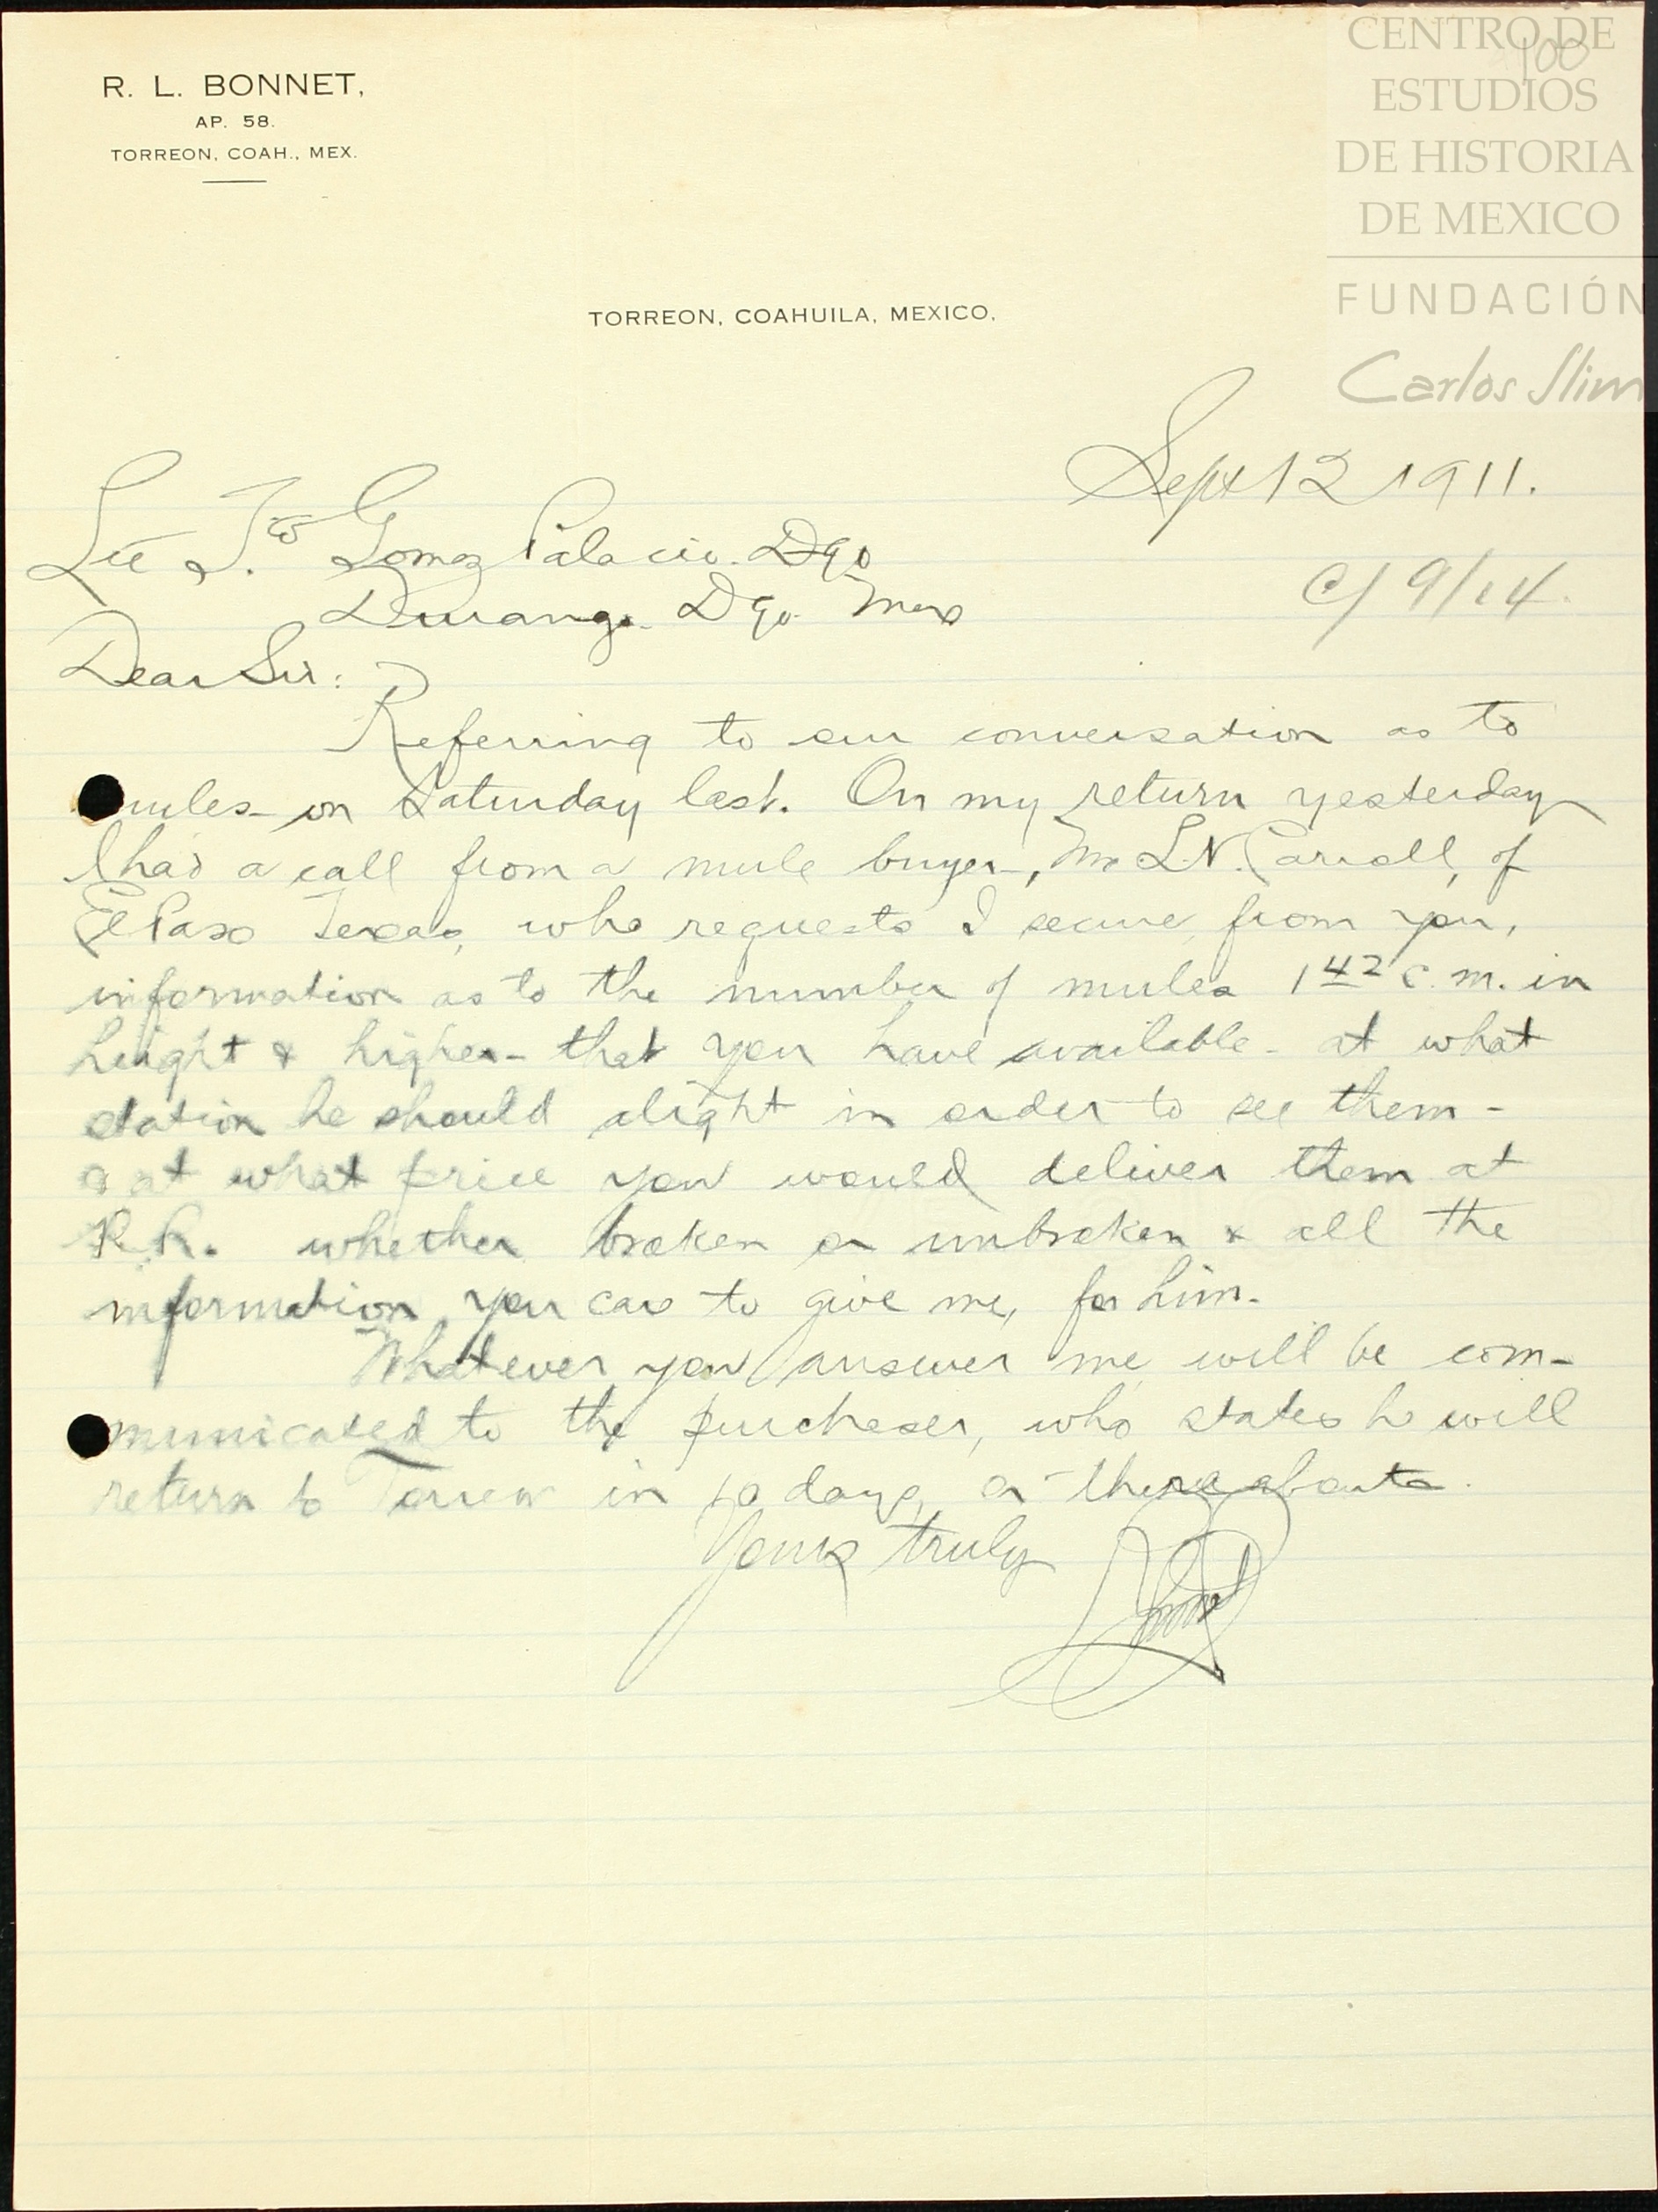 CENTRO DE
ESTUDIOS
DE HISTORIA
DE MEXICO
FUNDACIÓN
Carlos Slim
100
R. L. BONNET,
AP. 58.
TORREON, COAH., MEX.
TORREON, COAHUILA, MEXICO,
Sept 12 1911.
Lic Fco Gomez Palacio. Dgo
Durango. Dgo. Mex
c/ 9/14.
Dear Sir:
Referring to our conversation as to
mules on Saturday last. On my return yesterday
I had a call from a mule buyer, Mr L.N. Carroll, of
El Paso Texas, who requests I secure from you,
information as to the number of mules 1 42 c.m. in
height & higher - that you have available - at what
station he should alight in order to see them -
at what price you would deliver them at
R.R. whether broken or unbroken & all the
information you care to give me, for him.
Whatever you answer me will be com-
municated to the purchaser, who states he will
return to Torreon in 10 days, or thereabouts.
Yours truly
Bonnet